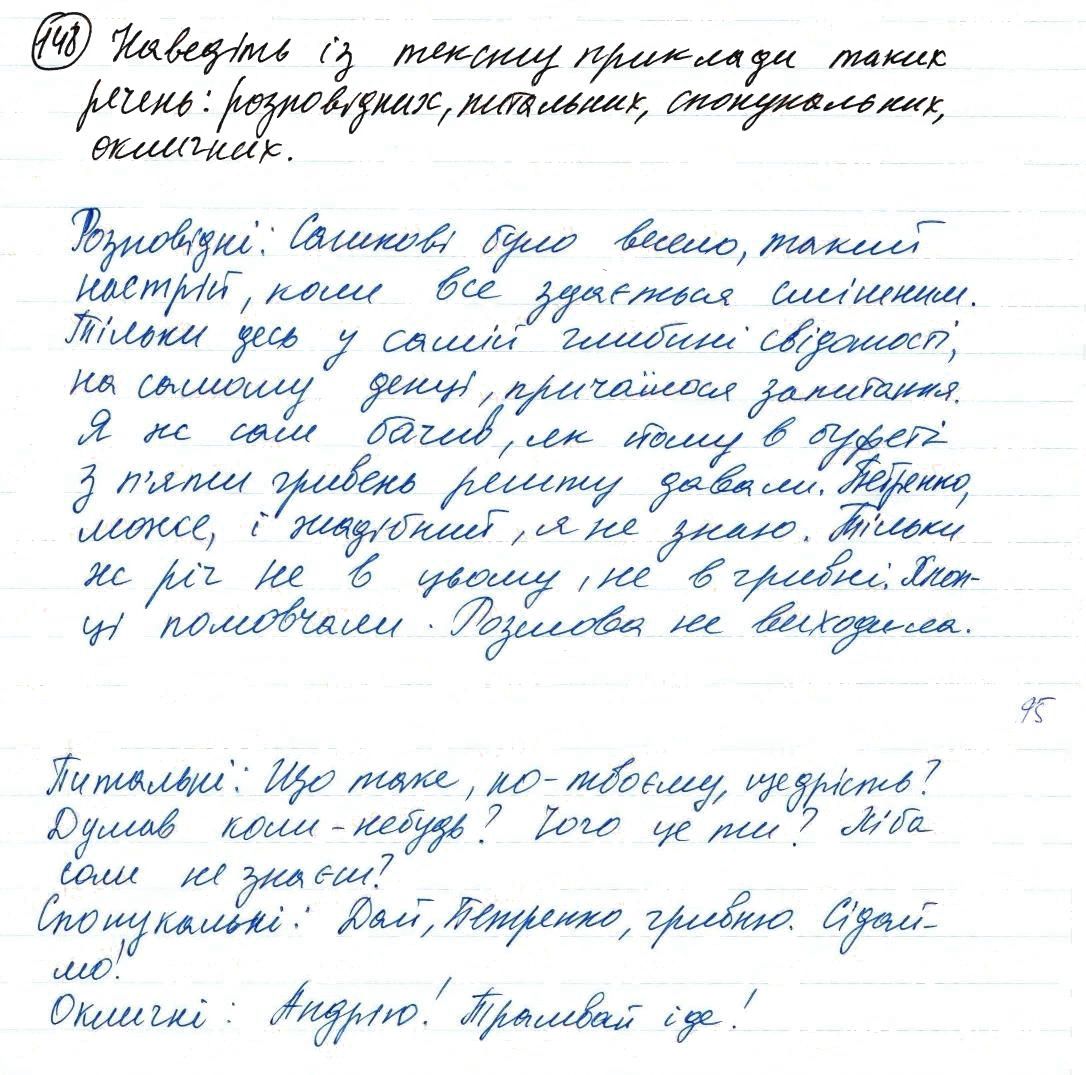 148 Наведіть із тексту приклади таких
речень: розповідних, питальних, спонукальних,
окличних.
Розповідні: Сашкові було весело, такий
настрій, коли все здається смішним.
Тільки десь у самій глибині свідомості,
на самому денці, причаїлося запитання.
Я ж сам бачив, як тому в буфеті
з п'яти гривень решту давали. Петренко,
може, і жадібний, я не знаю. Тільки
ж річ не в цьому, не в гривні. Хлоп-
ці помовчали. Розмова не виходила.
95
Питальні: Що таке, по-твоєму, щедрість?
Думав коли-небудь? Чого це ти? Хіба
сам не знаєш?
Спонукальні: Дай, Петренко, гривню. Сідай-
мо!
Окличні: Андрію! Трамвай іде!